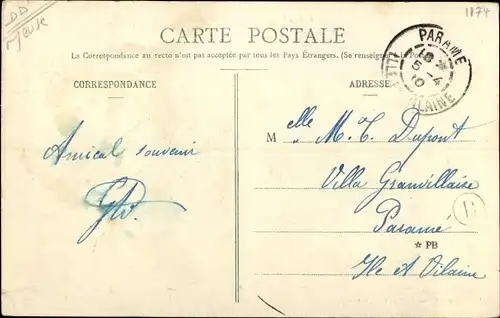 1174
CARTE POSTALE
La Correspondance au recto n'est pas acceptée par tous les Pays Étrangers. (Se renseigner à la Poste)
CORRESPONDANCE
ADRESSE
PARAMÉ
5 -4
10
ILLE VILAINE
Amical souvenir
M elle M. T. Dupont
Villa Granvillaise
Paramé
★ PB
Ile et Vilaine